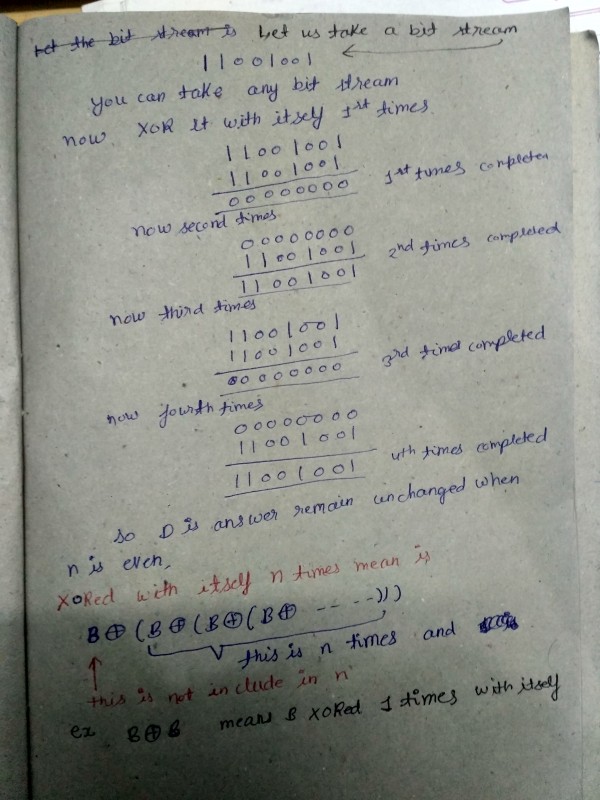 Let the bit stream is Let us take a bit stream
11001001
you can take any bit stream
now XOR it with itself 1st times
11001001
11001001
00000000 1st times completed
now second times
00000000
11001001
11001001 2nd times completed
now third times
11001001
11001001
00000000 3rd times completed
now fourth times
00000000
11001001
11001001 4th times completed
so D is answer remain unchanged when
n is even,
XORed with itself n times mean is
B⊕(B⊕(B⊕(B⊕ -- --)))
this is n times and
this is not include in n
ex B⊕B means B XORed 1 times with itself